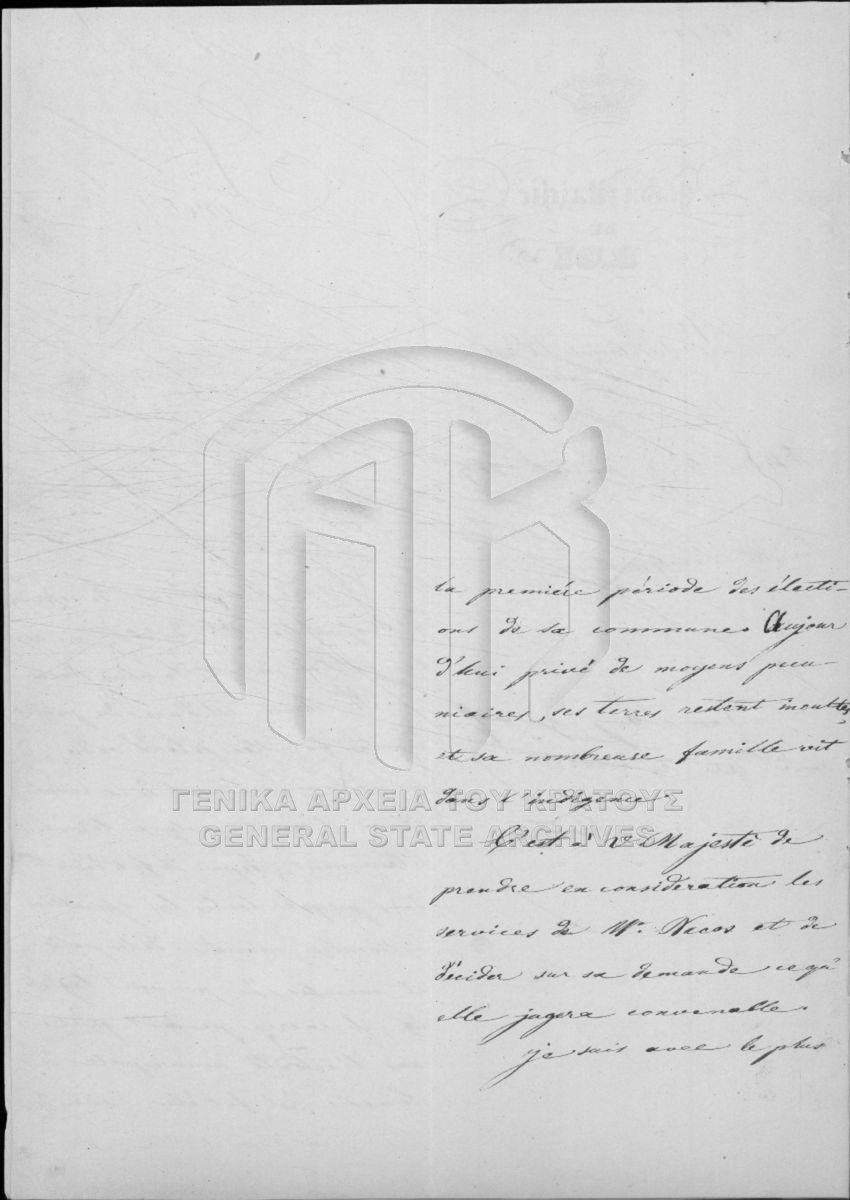 la première période des électi-
ons de sa commune. Aujour
d'hui privé de moyens pécu-
niaires, ses terres restent incultes,
et sa nombreuse famille vit
dans l'indigence.
C'est à V. Majesté de
prendre en considération les
services de Mr. Nacos et de
décider sur sa demande ce qu'
elle jugera convenable.
je suis avec le plus
ΓΕΝΙΚΑ ΑΡΧΕΙΑ ΤΟΥ ΚΡΑΤΟΥΣ
GENERAL STATE ARCHIVES